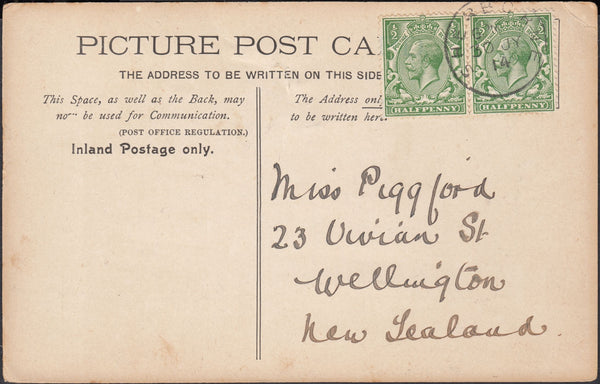 PICTURE POST CA
THE ADDRESS TO BE WRITTEN ON THIS SIDE
This Space, as well as the Back, may
now be used for Communication.
(POST OFFICE REGULATION.)
Inland Postage only.
The Address only
to be written here.
HALFPENNY
HALFPENNY
14
Miss Piggford
23 Vivian St
Wellington
New Zealand.